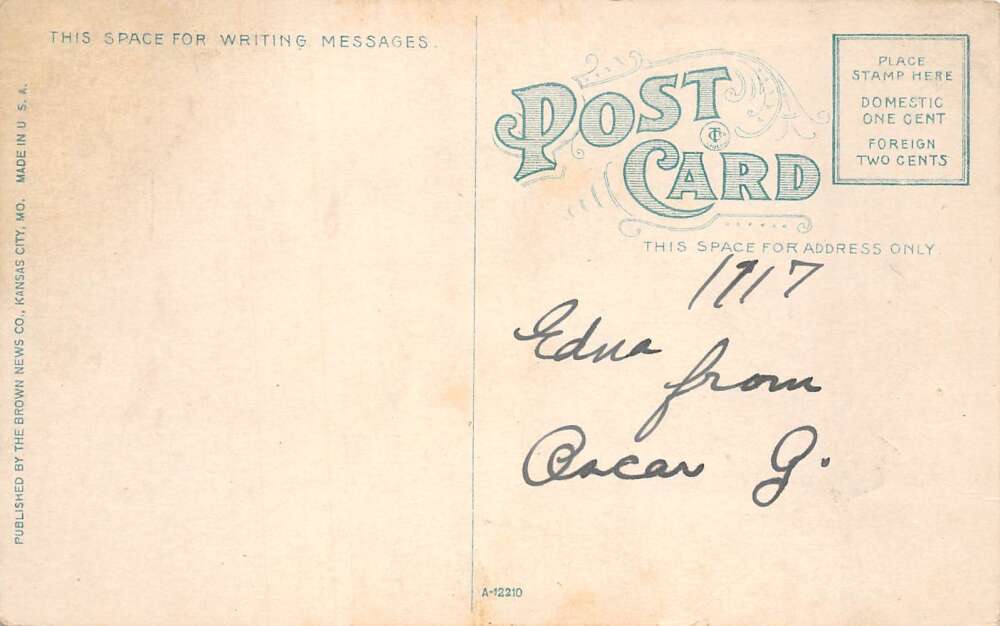 THIS SPACE FOR WRITING MESSAGES.
POST
CARD
PLACE
STAMP HERE
DOMESTIC
ONE CENT
FOREIGN
TWO CENTS
THIS SPACE FOR ADDRESS ONLY.
1917
Edna
from
Oscar G.
PUBLISHED BY THE BROWN NEWS CO., KANSAS CITY, MO. MADE IN U. S. A.
A-12210